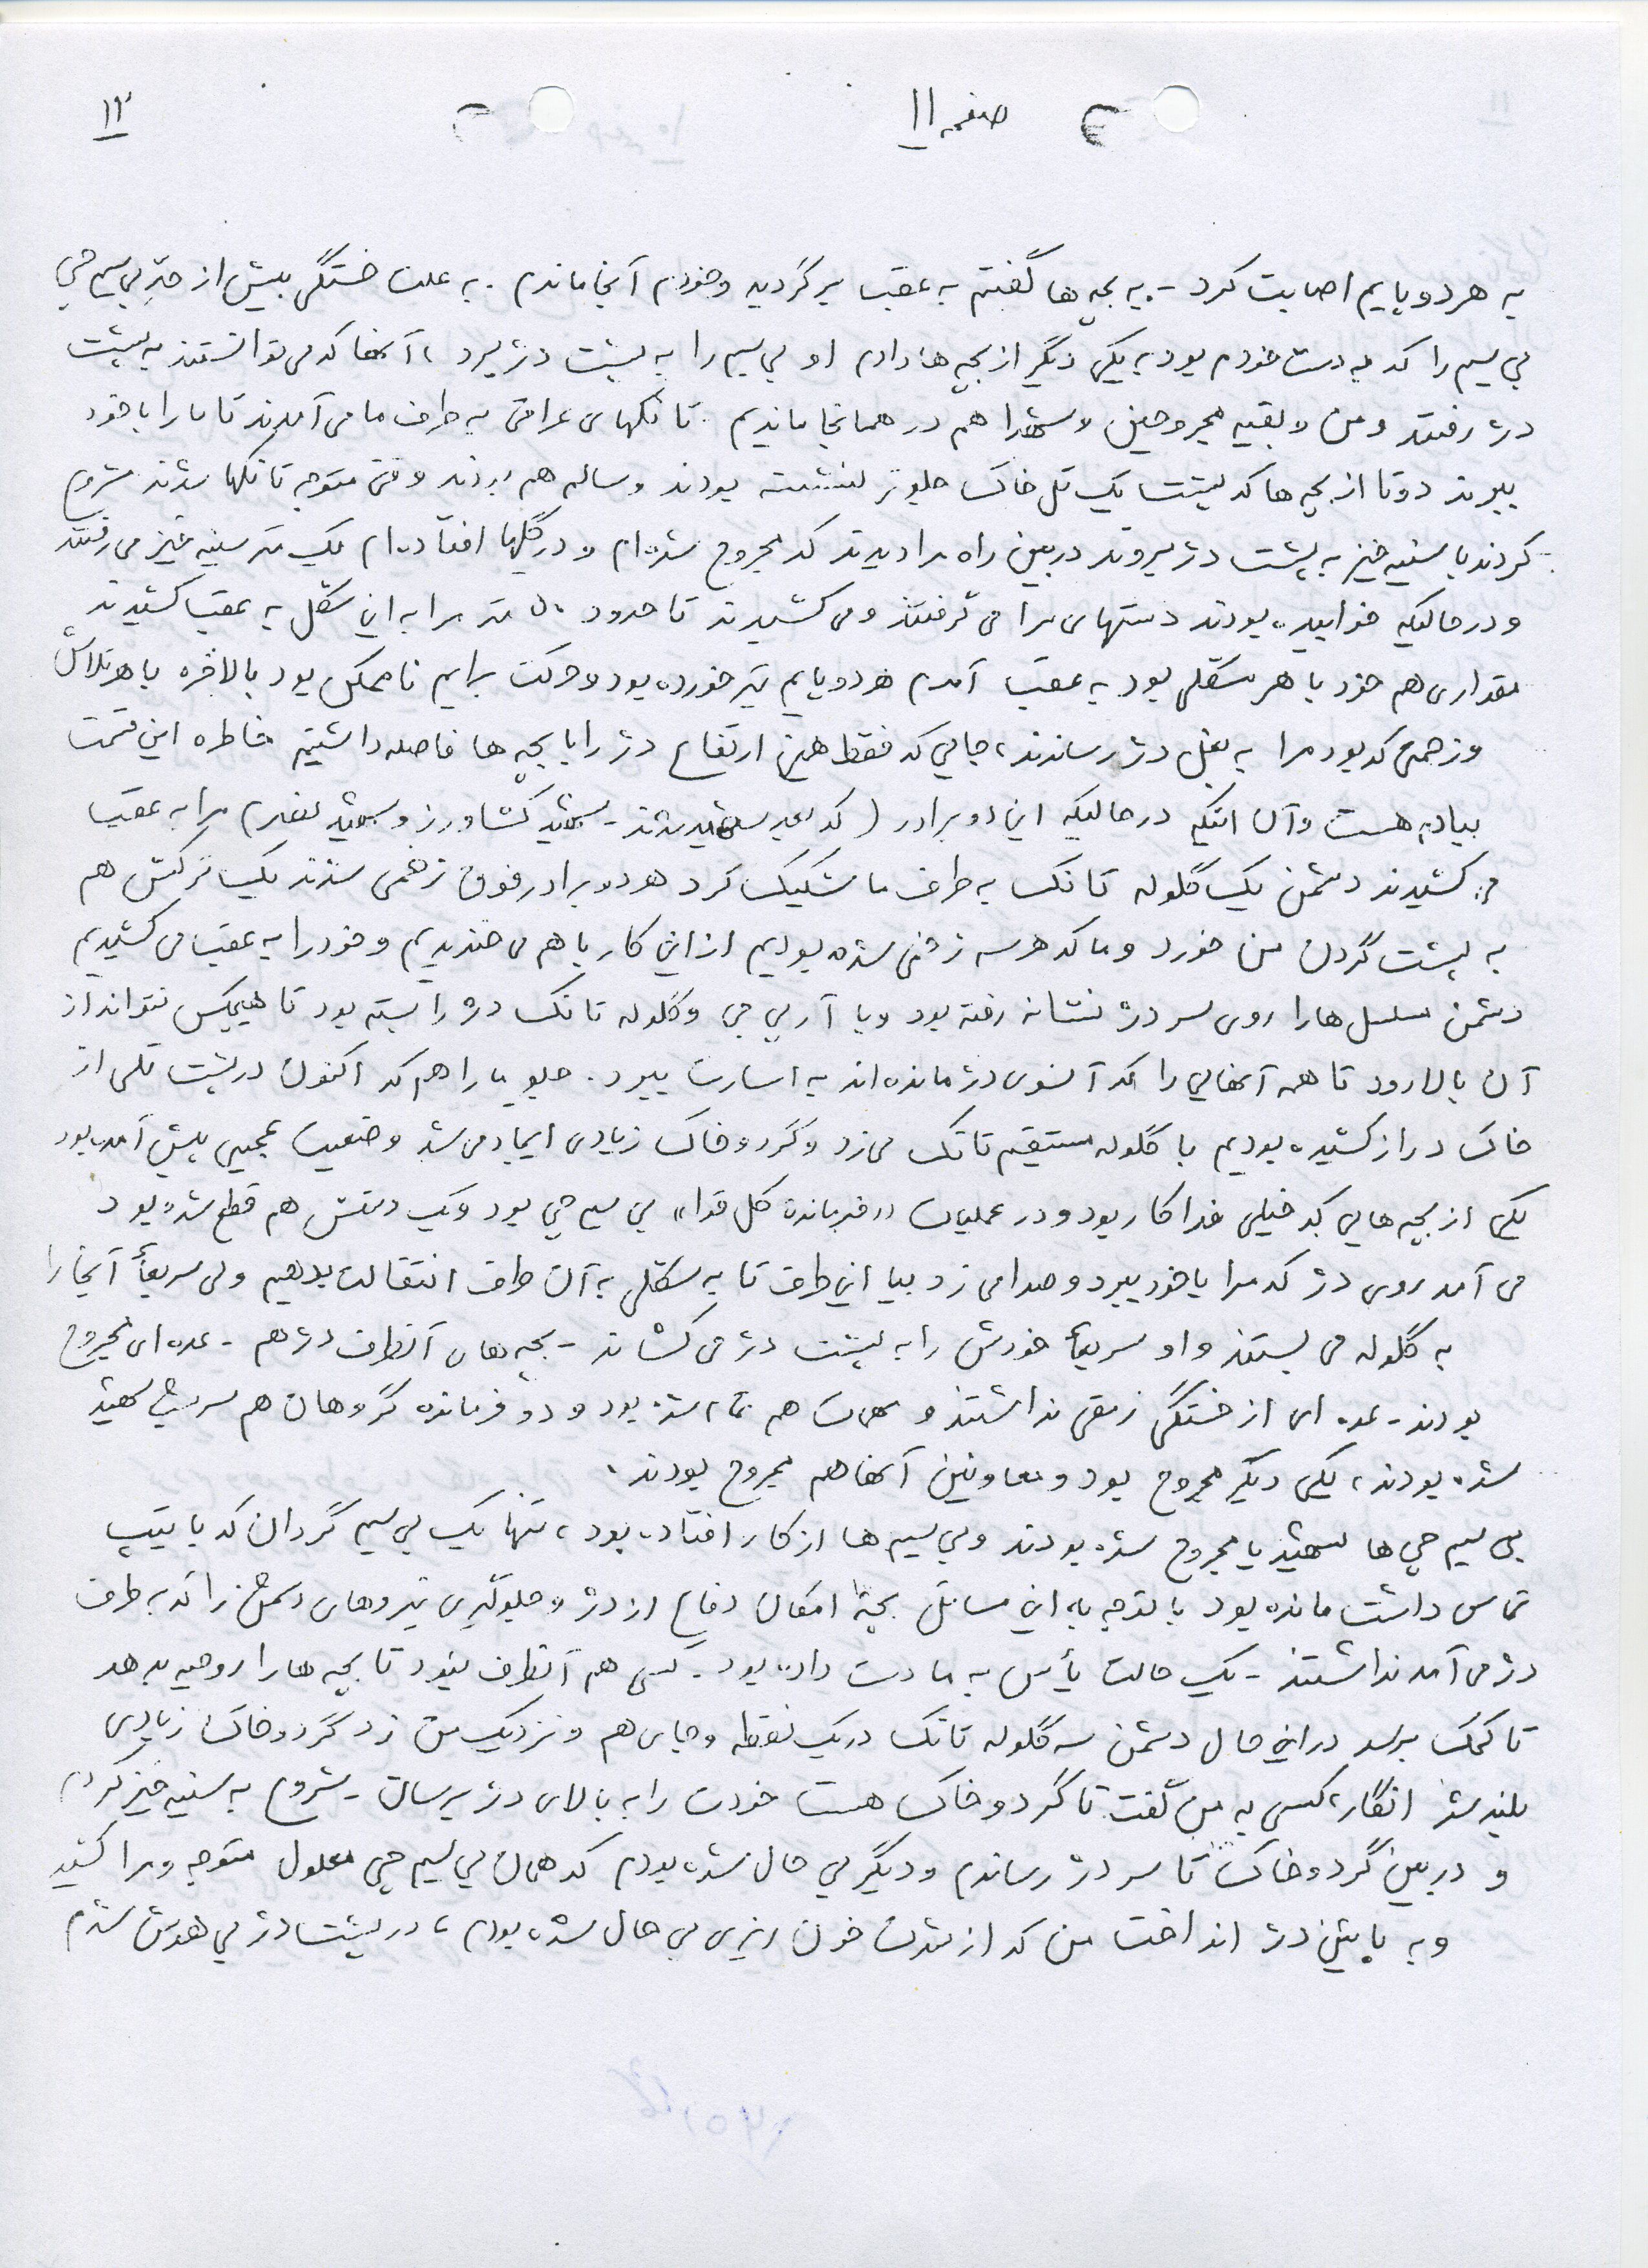 صفحه ۱۱
۱۲
به هر دو پایم اصابت کرد -. به بچه ها گفتم به عقب برگردید وخودم آنجا ماندم . به علت خستگی بیش از حدّ بی سیم چی
بی سیم را که به دست خودم بود به یکی دیگر از بچه ها دادم او بی سیم را به پشت دژ برد ، آنها که می توانستند به پشت
دژ رفتند ومن و بقیه مجروحین و شهدا هم در همانجا ماندیم . تانکهای عراقی به طرف ما می آمدند تا ما را با خود
ببرند دوتا از بچه ها که پشت یک تل خاک جلوتر نشسته بودند وسالم هم بودند وقتی متوجه تانکها شدند شروع
کردند با سینه خیز به پشت دژ بروند دربین راه مرا دیدند که مجروح شده ام و در گلها افتاده ام یک متر سینه خیز می رفتند
و در حالیکه خوابیده بودند دستهای مرا می گرفتند و می کشیدند تا حدود ۵۰ متر مرا به این شکل به عقب کشیدند
مقداری هم خود با هر مشکلی بود به عقب آمدم هر دو پایم تیر خورده بود وحرکت برایم ناممکن بود بالاخره با هر تلاش
وزحمتی که بود مرا به بغل دژ رساندند ، جایی که فقط همین ارتفاع دژ را با بچه ها فاصله داشتیم خاطره این قسمت
بیادم هست وآن اینکه در حالیکه این دو برادر ( که بعد شهید شدند - شهید کشاورز و شهید ) مرا به عقب
می کشیدند دشمن یک گلوله تانک به طرف ما شلیک کرد هر دو برادر فوق زخمی شدند یک ترکش هم
به پشت گردن من خورد و ما که هر سه زخمی شده بودیم از این کار با هم می خندیدیم و خود را به عقب می کشیدیم
دشمن مسلسل ها را روی سر دژ نشانه رفته بود وبا آر پی جی وگلوله تانک دژ را بسته بود تا هیچکس نتواند از
آن بالا رود تا همه آنهایی را که آنسوی دژ مانده اند به اسارت ببرد . جلو ما را هم که اکنون در پشت تلی از
خاک دراز کشیده بودیم با گلوله مستقیم تانک می زد و گرد و خاک زیادی ایجاد می شد وضعیت عجیبی پیش آمده بود
یکی از بچه هایی که خیلی فداکار بود و در عملیات «فرمانده کل قوا» بی سیم چی بود ویک دستش هم قطع شده بود
می آمد روی دژ که مرا با خود ببرد و صدا می زد بیا این طرف تا به شکلی به آن طرف انتقالت بدهیم ولی سریعاً آنجا را
به گلوله می بستند واو سریعاً خودش را به پشت دژ می کشاند - بچه های آنطرف دژ هم - عده ای مجروح
بودند - عده ای از خستگی رمقی نداشتند و مهمات هم تمام شده بود و دو فرمانده گروهان هم شهید
شده بودند ، یکی دیگر مجروح بود و معاونین آنها هم مجروح بودند .
بی سیم چی ها شهید یا مجروح شده بودند وبی سیم ها از کار افتاده بود ، تنها یک بی سیم گردان که با تیپ
تماس داشت مانده بود با توجه به این مسائل بچه ها امکان دفاع از دژ و جلوگیری نیروهای دشمن را که به طرف
دژ می آمد نداشتند - یک حالت یأس به ما دست داده بود . کسی هم آنطرف نبود تا بچه ها را روحیه بدهد
تا کمک برسد در این حال دشمن سه گلوله تانک در یک نقطه و جای هم و نزدیک من زد گرد و خاک زیادی
بلند شد انگار ، کسی به من گفت تا گرد و خاک هست خودت را به بالای دژ برسان - شروع به سینه خیز کردم
و در بین گرد و خاک تا سر دژ رساندم و دیگر بی حال شده بودم که همان بی سیم چی معلول متوجه و مرا کشید
وبه پایین دژ انداخت من که از شدت خون ریزی بی حال شده بودم ، در پشت دژ بی هوش شدم